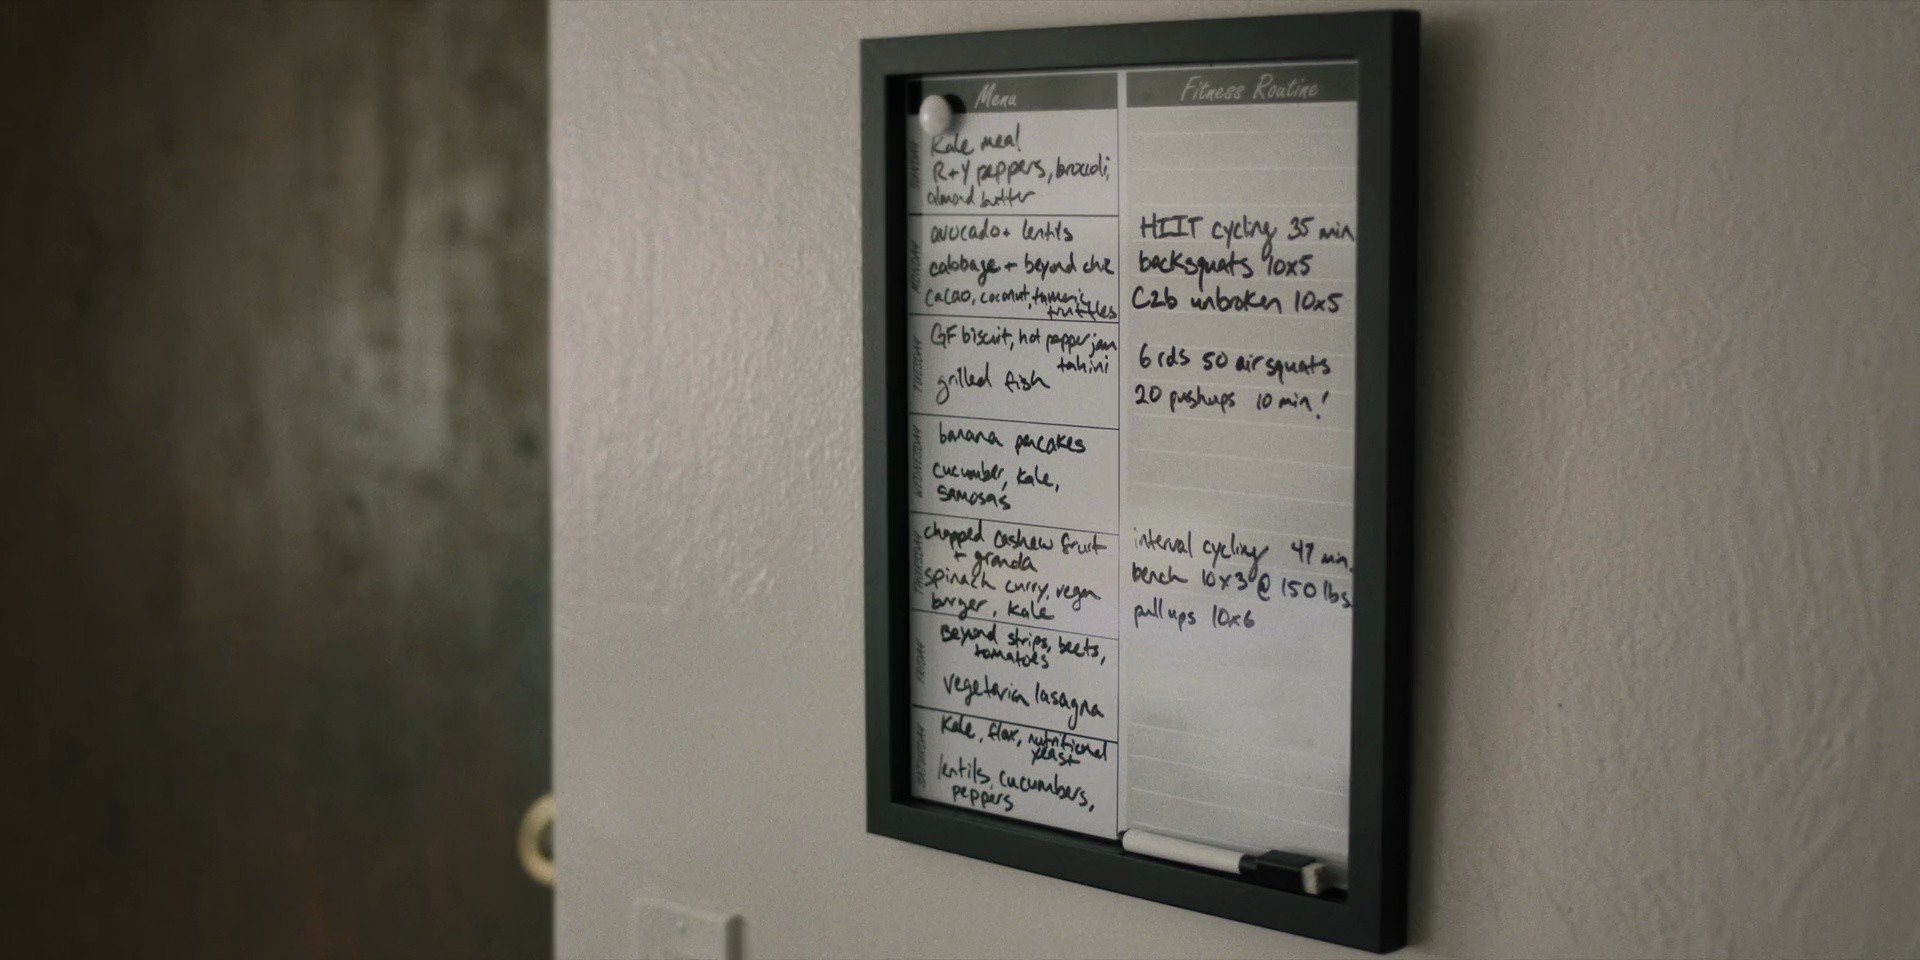 Menu
SUNDAY
Kale meal
R+Y peppers, broccoli,
almond butter
MONDAY
avocado + lentils
cabbage + beyond
cacao, coconut, tumeric
truffles
TUESDAY
GF biscuit, hot pepper jam
tahini
grilled fish
WEDNESDAY
banana pancakes
cucumber, kale,
samosas
THURSDAY
chopped cashew fruit
+ granola
spinach curry, vegan
burger, kale
FRIDAY
Beyond strips, beets,
tomatoes
vegetarian lasagna
SATURDAY
Kale, flax, nutritional
yeast
lentils, cucumbers,
peppers
Fitness Routine
HIIT cycling 35 min
backsquats 10x5
C2b unbroken 10x5
6 rds 50 air squats
20 pushups 10 min!
interval cycling 47 min.
bench 10x3 @ 150 lbs
pull ups 10x6